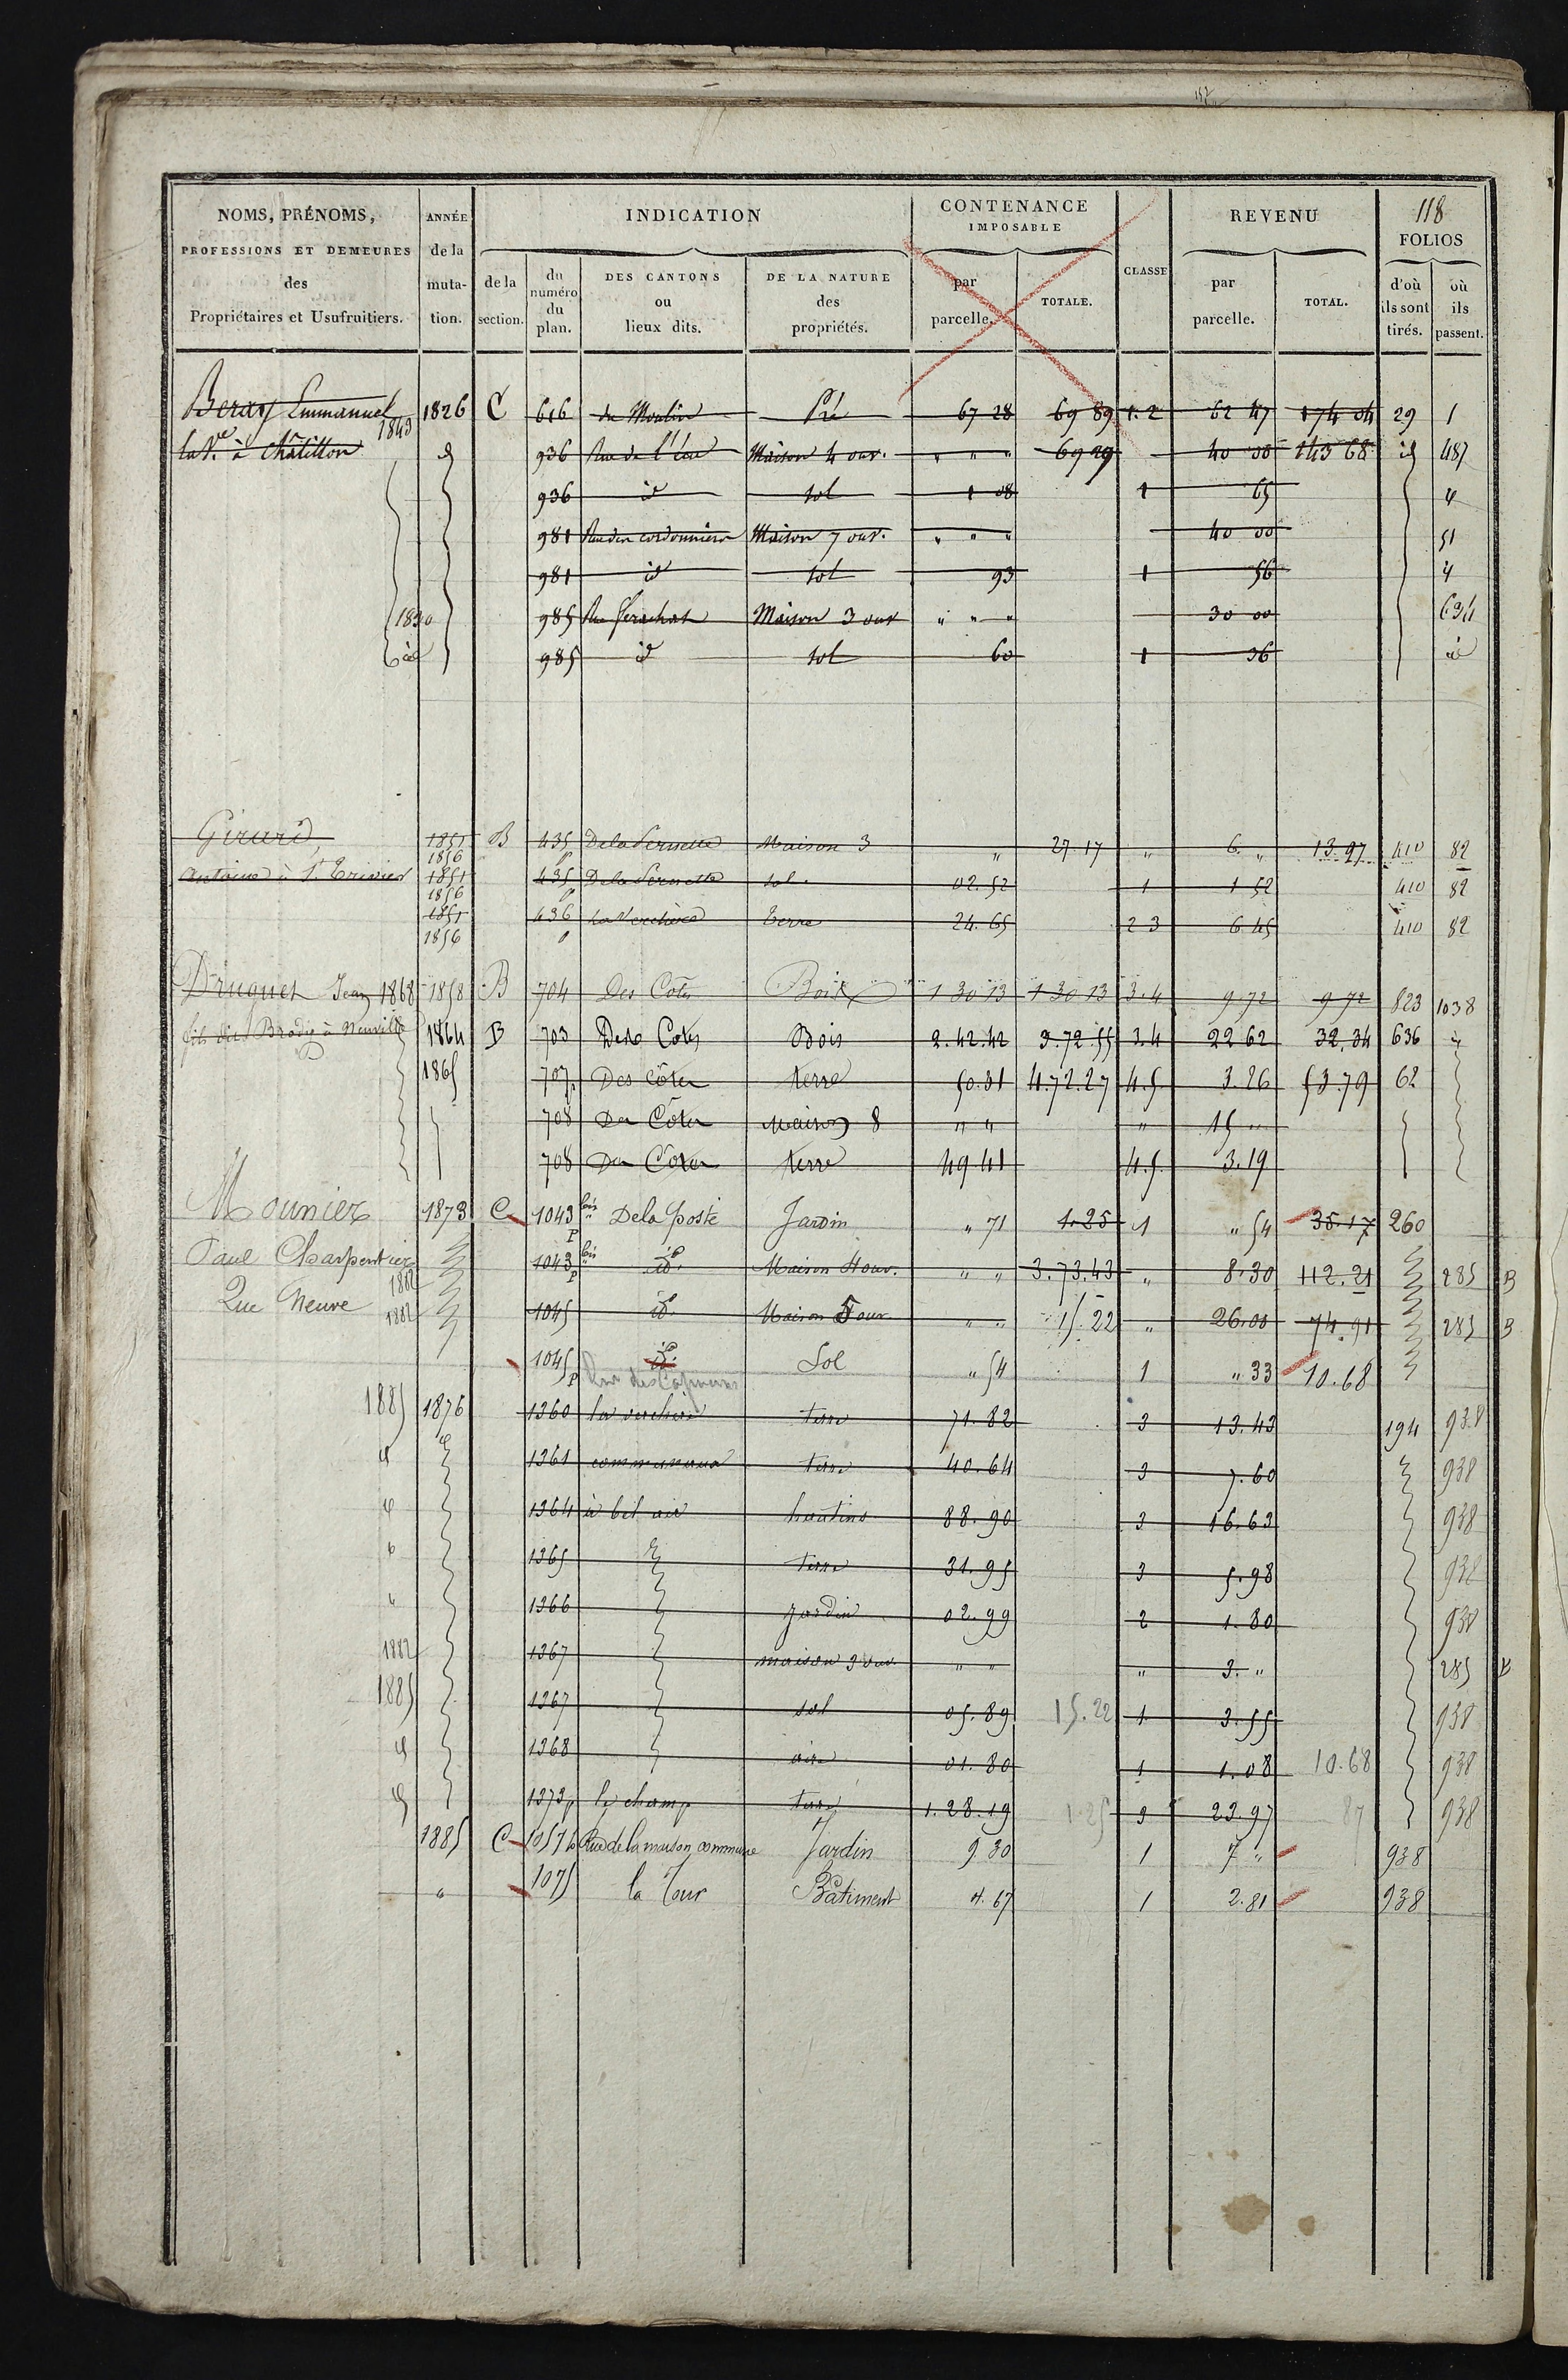 118
NOMS, PRÉNOMS, PROFESSIONS ET DEMEURES des Propriétaires et Usufruitiers.
ANNÉE de la mutation.
INDICATION
de la section.
du numéro du plan.
DES CANTONS ou lieux dits.
DE LA NATURE des propriétés.
CONTENANCE IMPOSABLE
par parcelle.
TOTALE.
CLASSE
REVENU
par parcelle.
TOTAL.
FOLIOS
d'où ils sont tirés.
où ils passent.
Emmanuel 1826 C 616 du Moulin Pré 67 28 69 89 1.2 62 47 174 04 29 1
la Ve à Châtillon 1843 936 Rue de l'écu Maison 4 ouv. " " " 69 29 40 00 143 68 id 487
936 id sol 1 08 1 65
981 Rue des cordonniers Maison 7 ouv. " " " 40 00 51
981 id sol 93 1 56
985 Maison 3 ouv " " " 30 00 634
985 id sol 60 1 36 id
Girard, 1851 1856 B 435 p Maison 3 " 27 17 " 6 " 13.97 410 82
Antoine à St Trivier 1851 1856 435 p sol. 02.52 1 1 52 410 82
1851 1856 436 p La Verchère Terre 24.65 2 3 6 45 410 82
Druguet Jean 1868 1858 B 704 Des Cotes Bois 1 30 13 1 30 13 3.4 9.72 9 72 823 1038
à Neuville 1864 B 703 Des Cotes Bois 2.42.42 3.72.55 3.4 22 62 32.34 636
1865 707 p Des Côtes terre 50.31 4.72.27 4.5 3.26 53.79 62
708 Des Côtes Maison 8 " " " 15 "
708 Des Cotes terre 49 41 4.5 3.19
Mounier 1873 C 1043 bis p De la poste Jardin " 71 1.25 1 " 54 35.17 260
Paul Charpentier 1882 1043 bis p id. Maison 4 ouv. " " 3.73.43 " 8.30 112.21 285 B
Rue Neuve 1882 1045 id. Maison 5 ouv " " 15.22 " 26.00 74.91 285 B
1045 p id. Sol " 54 1 " 33 10.68
Rue des
1885 1876 1360 la verchère terre 71.82 3 13.43 194 938
1361 communaux terre 40.64 3 7.60 938
1364 à bel air hautins 88.90 3 16.63 938
1365 terre 31.95 3 5.98 938
1366 jardin 02.99 2 1.80 938
1882 1367 maison 3 ouv. " " " 3. " 285
1885 1367 sol 05.89 15.22 1 3.55 938
1368 aire 01.80 1 1.08 10.68 938
1373 p le champ terre 1.28.19 1.25 3 23.97 87 938
1885 C Rue de la maison commune Jardin 9 30 1 7 " 938
" 1075 la Tour Bâtiment 4.67 1 2.81 938